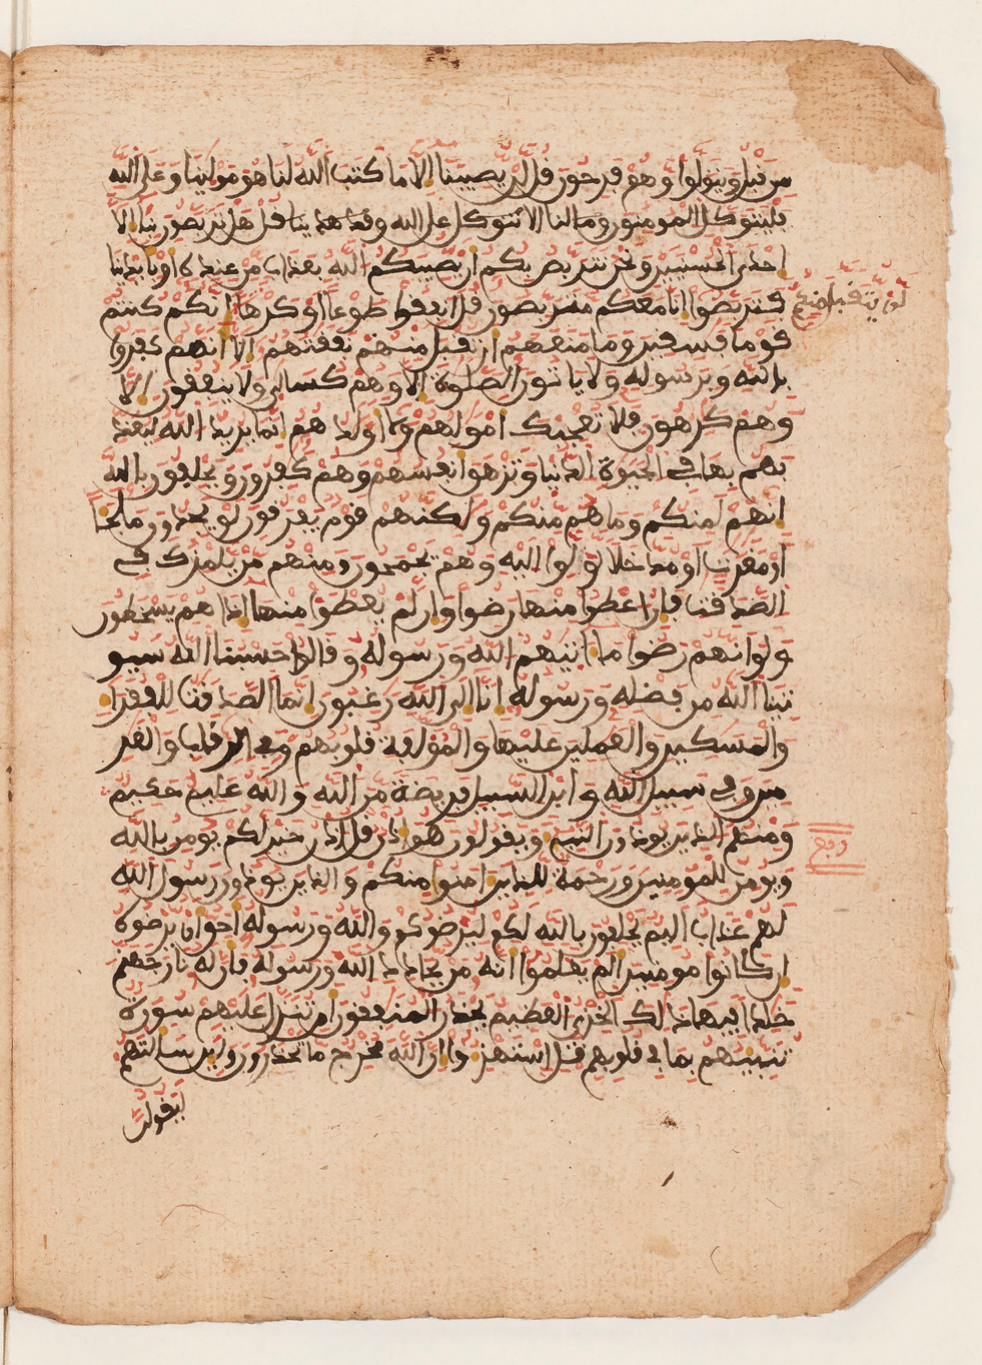 من قبل ويتولوا وهم فرحون قل لن يصيبنا الا ما كتب الله لنا هو مولينا وعلى الله
فليتوكل المومنون وما لنا الا نتوكل على الله وقد هدينا قل هل تربصون بنا الا
احدى الحسنيين ونحن نتربص بكم ان يصيبكم الله بعذاب من عنده او بايدينا
فتربصوا انا معكم متربصون قل انفقوا طوعا او كرها انكم كنتم
لن يتقبل منكم
قوما فسقين وما منعهم ان تقبل منهم نفقتهم الا انهم كفروا
بالله وبرسوله ولا ياتون الصلوة الا وهم كسالى ولا ينفقون الا
وهم كرهون فلا تعجبك امولهم ولا اولدهم انما يريد الله ليعذ
بهم بها في الحيوة الدنيا وتزهق انفسهم وهم كفرون ويحلفون بالله
انهم لمنكم وما هم منكم ولكنهم قوم يفرقون لو يجدون ملجا
او مغرت او مدخلا لولوا اليه وهم يجمحون ومنهم من يلمزك في
الصدقت فان اعطوا منها رضوا وان لم يعطوا منها اذا هم يسخطون
ولو انهم رضوا ما اتيهم الله ورسوله وقالوا حسبنا الله سيو
تينا الله من فضله ورسوله انا الى الله رغبون انما الصدقت للفقرا
والمسكين والعملين عليها والمولفة قلوبهم وفي الرقاب والغر
مين وفي سبيل الله وابن السبيل فريضة من الله والله عليم حكيم
ومنهم الذين يوذون النبي ويقولون هو اذن قل اذن خير لكم يومن بالله
ويومن للمومنين ورحمة للذين امنوا منكم والذين يوذون رسول الله
لهم عذاب اليم يحلفون بالله لكم ليرضوكم والله ورسوله احق ان يرضوه
ان كانوا مومنين الم يعلموا انه من يحادد الله ورسوله فان له نار جهنم
خلدا فيها ذلك الخزي العظيم يحذر المنفقون ان تنزل عليهم سورة
تنبيهم بما في قلوبهم قل استهزوا ان الله مخرج ما تحذرون ولين سالتهم
ليقولن